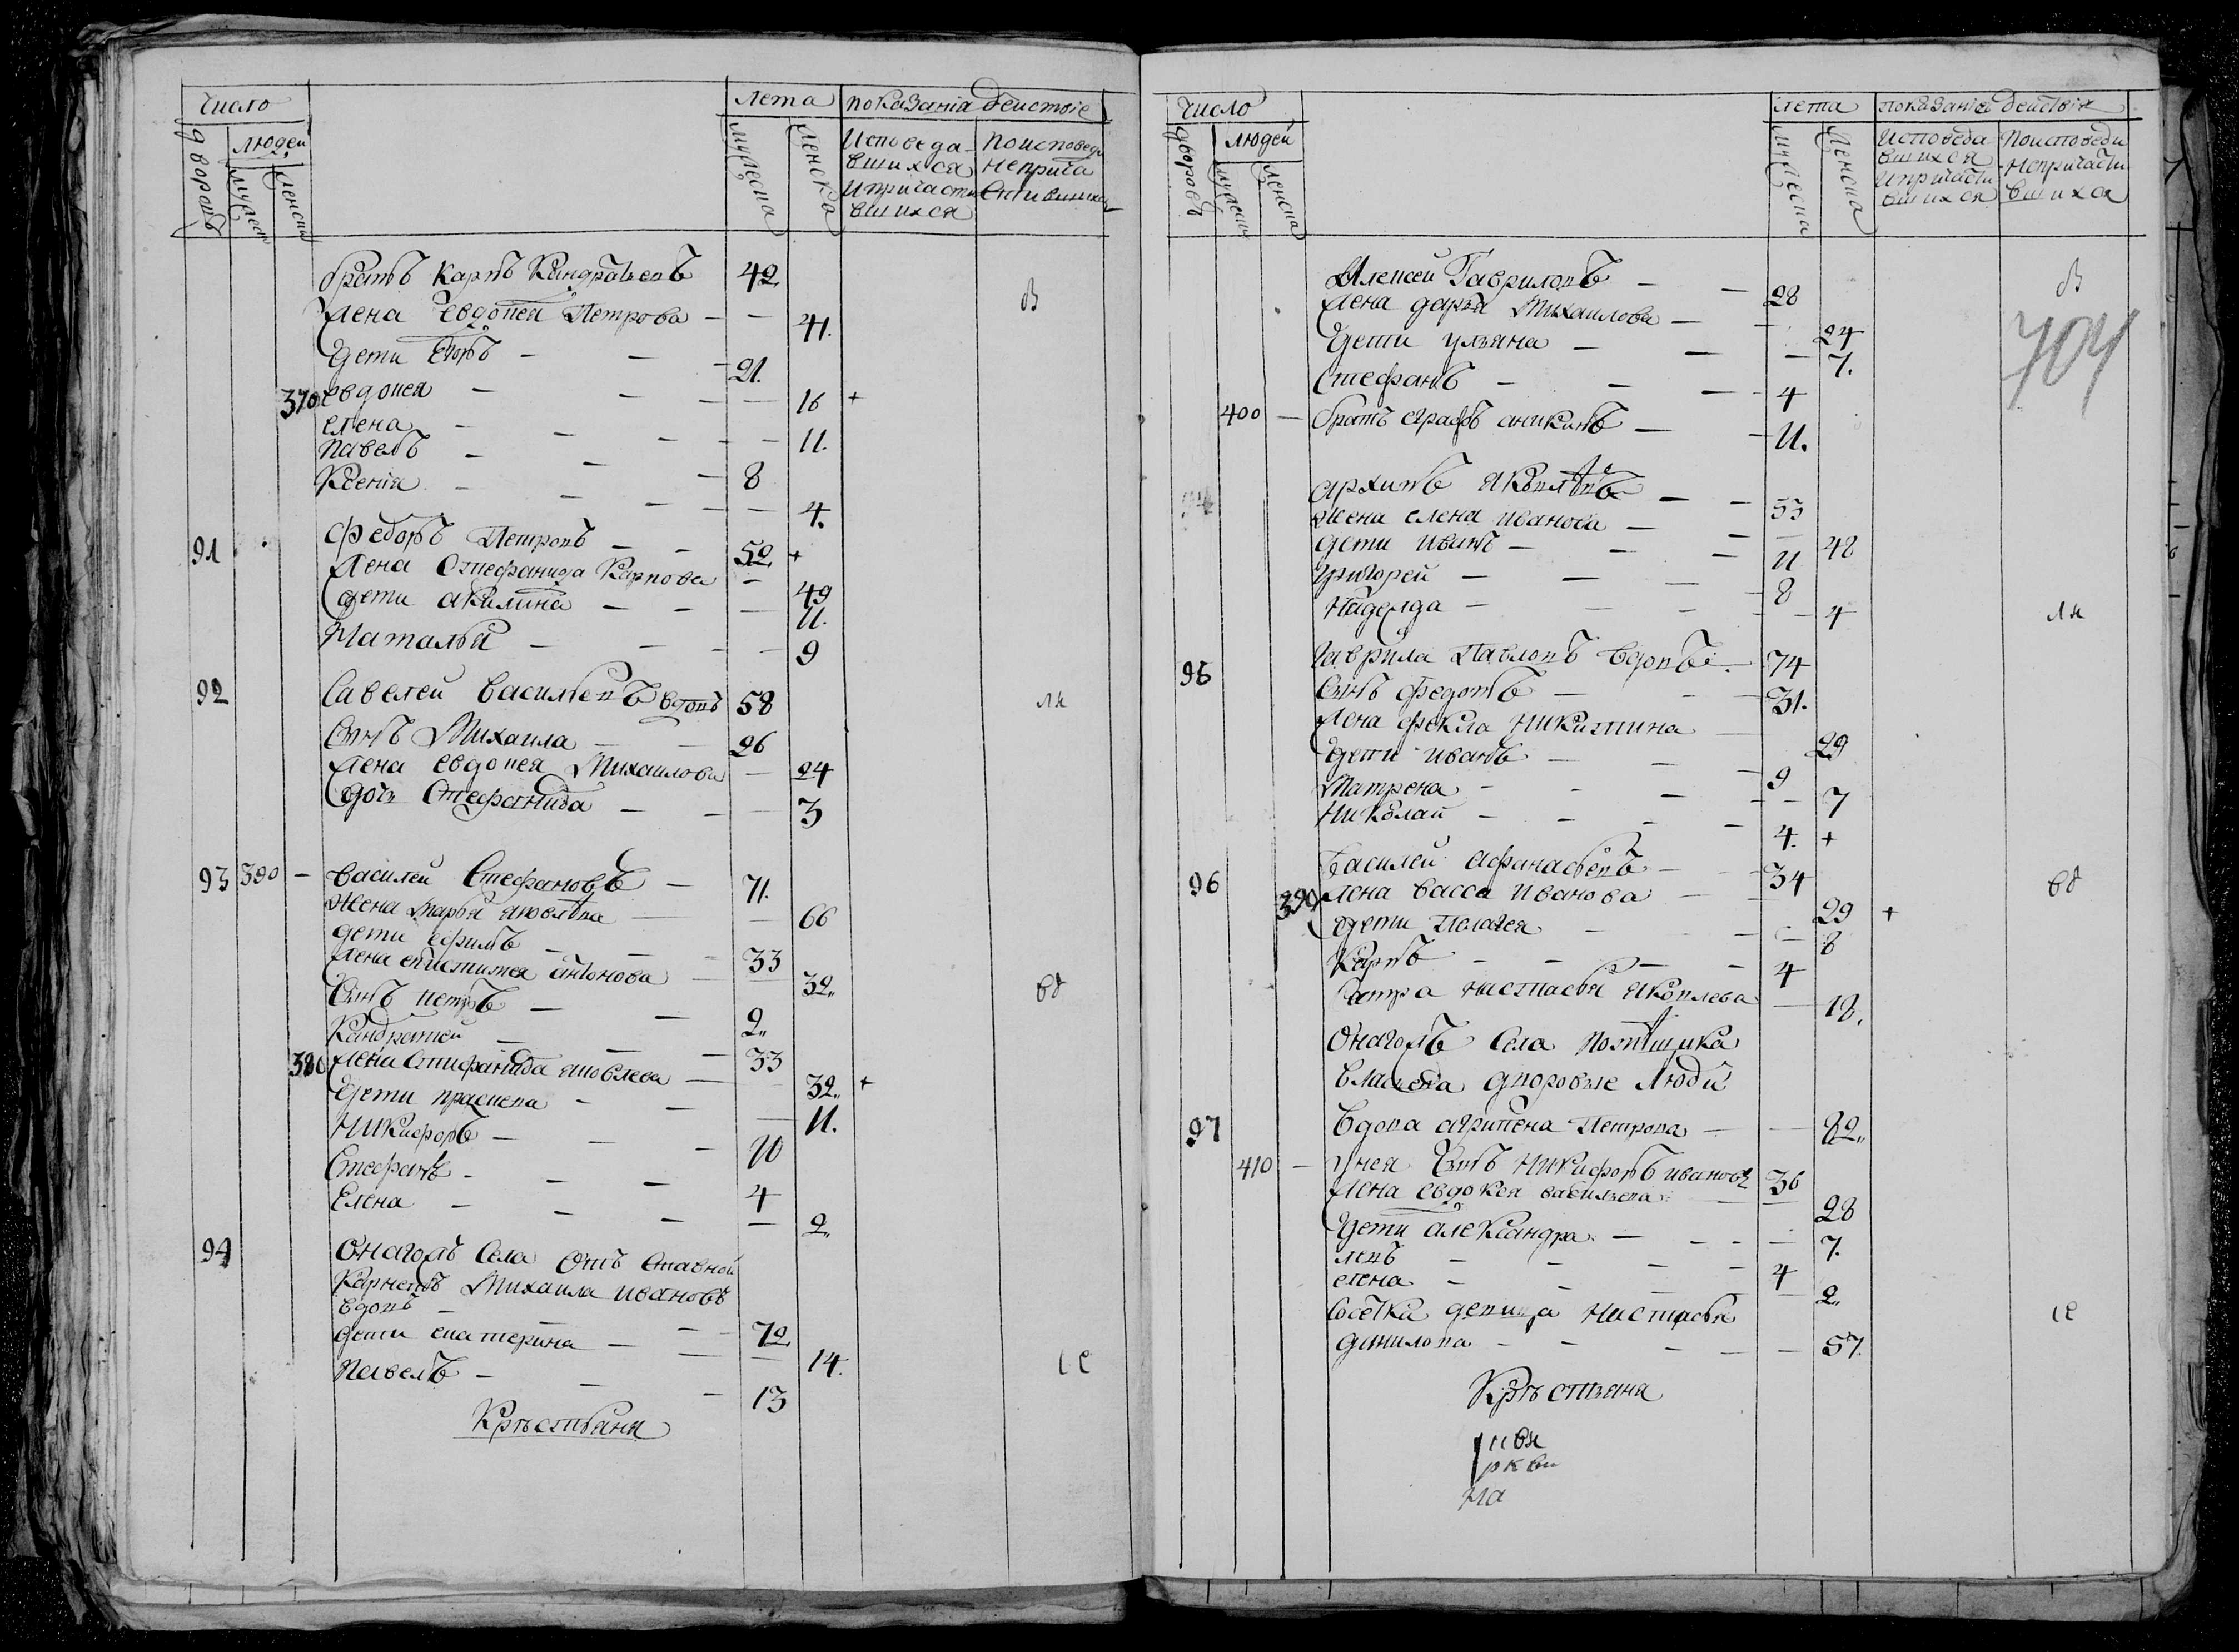 Число
лета показания действіе
дворовъ
людей
мужеска
женска
Исповеда-
вшихся
ипричасти
вшихся
Поисповеди
неприча
стившихся
братъ Карпъ Кандратьевъ 42
жена Евдокея Петрова — — 41.
дети Егоръ — — — 21.
370 евдокея — — — — 16 +
елена — — — — 11.
Павелъ — — — 8
Ксенія — — — — 4.
91 Федоръ Петровъ — — 52 +
жена Стефанида Карпова — 49
дети акилина — — — 11.
Наталья — — — 9
92 Савелей Васильевъ вдовъ 58
Сынъ Михаила — — 26
жена евдокея Михаилова — 24
дочь Стефанида — — — 3
93 390 — Василей Стефановъ — 71.
жена марья яковлева — — 66
дети ефимъ — — — 33
жена антонова — 32
Сынъ петръ — — 2
Кандратей — — — 33
380 жена Стифанида яковлева — 32 +
дети прасковя — — — 11.
Никифоръ — — — 10
Стефанъ — — — 4
Елена — — — — 2
94 Онагожъ Села Отъ
Михаила ивановъ
вдовъ — — — 72
дети екатерина — — — 14.
Павелъ — — — 13
Кръстьяня
Число
лета показаніе действія
дворовъ
людей
мужеска
женска
Исповеда
вшихся
ипричасти
вшихся
Поисповеди
непричасти
вшихся
Алексей Гавриловъ — — 28
жена дарья Михаилова — — 24
дети ульяна — — — 7.
Стефанъ — — — 4
704
400 — братъ аникинъ — — 11.
архипъ Яковлевъ — — 53
жена елена иванова — — 48
дети иванъ — — — 11
григорей — — — 8
Надежда — — — — 4
95 Гаврила Павловъ вдовъ — 74
Сынъ федотъ — — 31.
жена фекла Никитина — 29
дети иванъ — — — 9
Матрена — — — — 7
Николай — — — 4. +
96 Василей афанасьевъ — — 34
390 жена васса иванова — — 29 +
дети Пелагея — — — 8
Карпъ — — — — 4
Сестра настасья яковлева — 18.
Онагожъ Села помещика
дворовые люди
97 вдова агрипена Петрова — — 82
410 — унея Сынъ Никифоръ ивановъ 36
жена евдокея васильева — — 28
дети александра — — — — 7.
левъ — — — 4
елена — — — — 2
девица настасья
данилова — — — — 57.
Кръстьяня
на